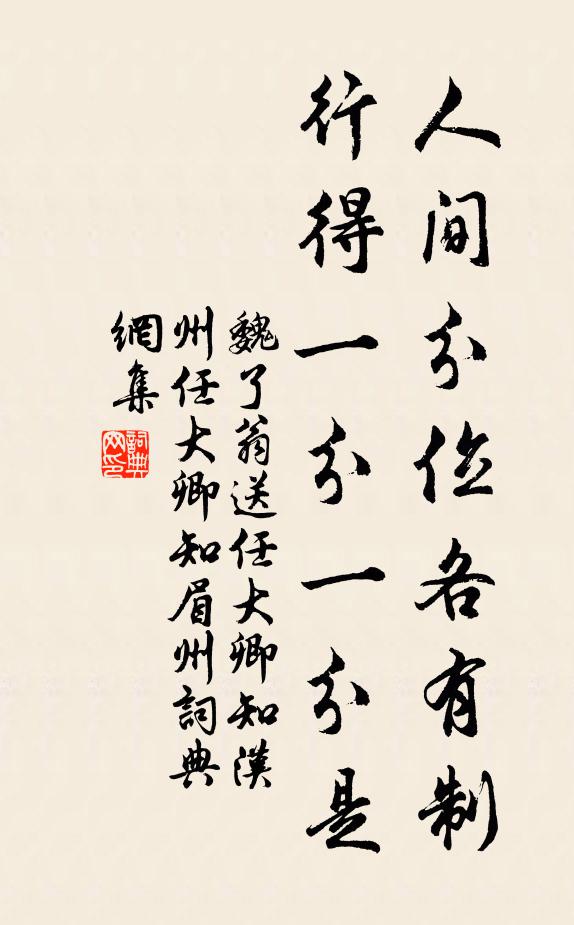 人間分位各有制
行得一分一分是
魏了翁送任大卿知漢
州任大卿知眉州詞典
網集
詞典網印